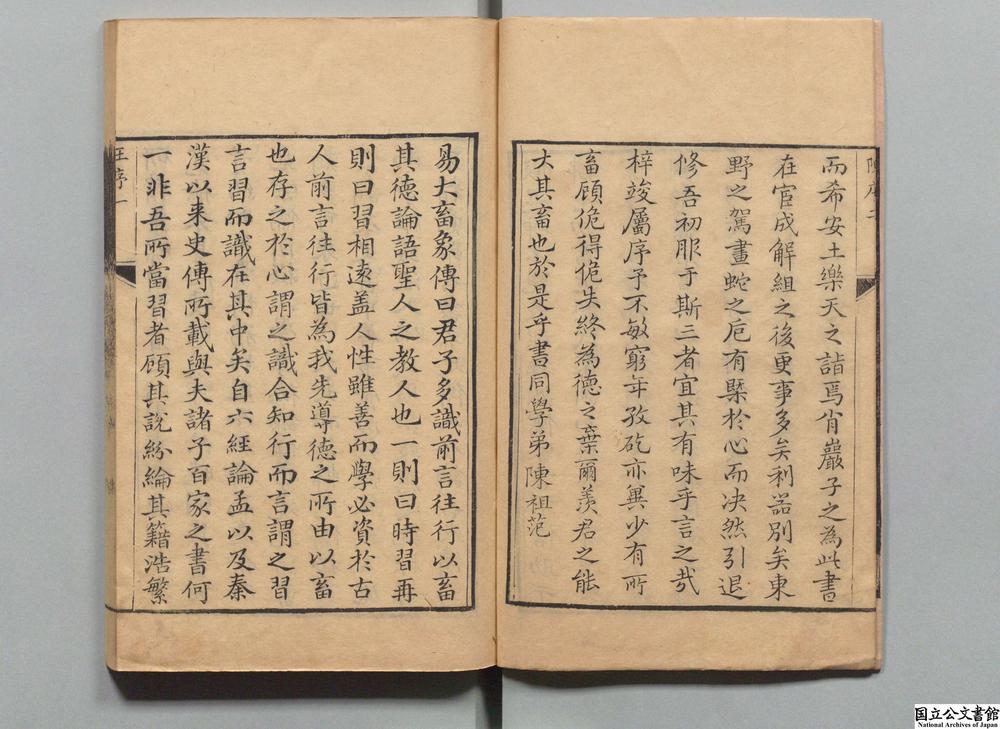 陳序二
而希安土樂天之詣焉肖巖子之為此書
在宦成解組之後更事多矣利器別矣東
野之駕畫蛇之巵有槩於心而决然引退
修吾初服于斯三者宜其有味乎言之㢤
梓竣屬序予不敏窮年孜矻亦兾少有所
畜顧佹得佹失終為德之棄爾羡君之能
大其畜也於是乎書同學弟陳祖范
易大畜象傳曰君子多識前言往行以畜
其德論語聖人之教人也一則曰時習再
則曰習相遠盖人性雖善而學必資於古
人前言往行皆為我先導德之所由以畜
也存之於心謂之識合知行而言謂之習
言習而識在其中矣自六經論孟以及秦
漢以来史傳所載與夫諸子百家之書何
一非吾所當習者顧其說紛綸其籍浩繁
王序一
国立公文書館
National Archives of Japan